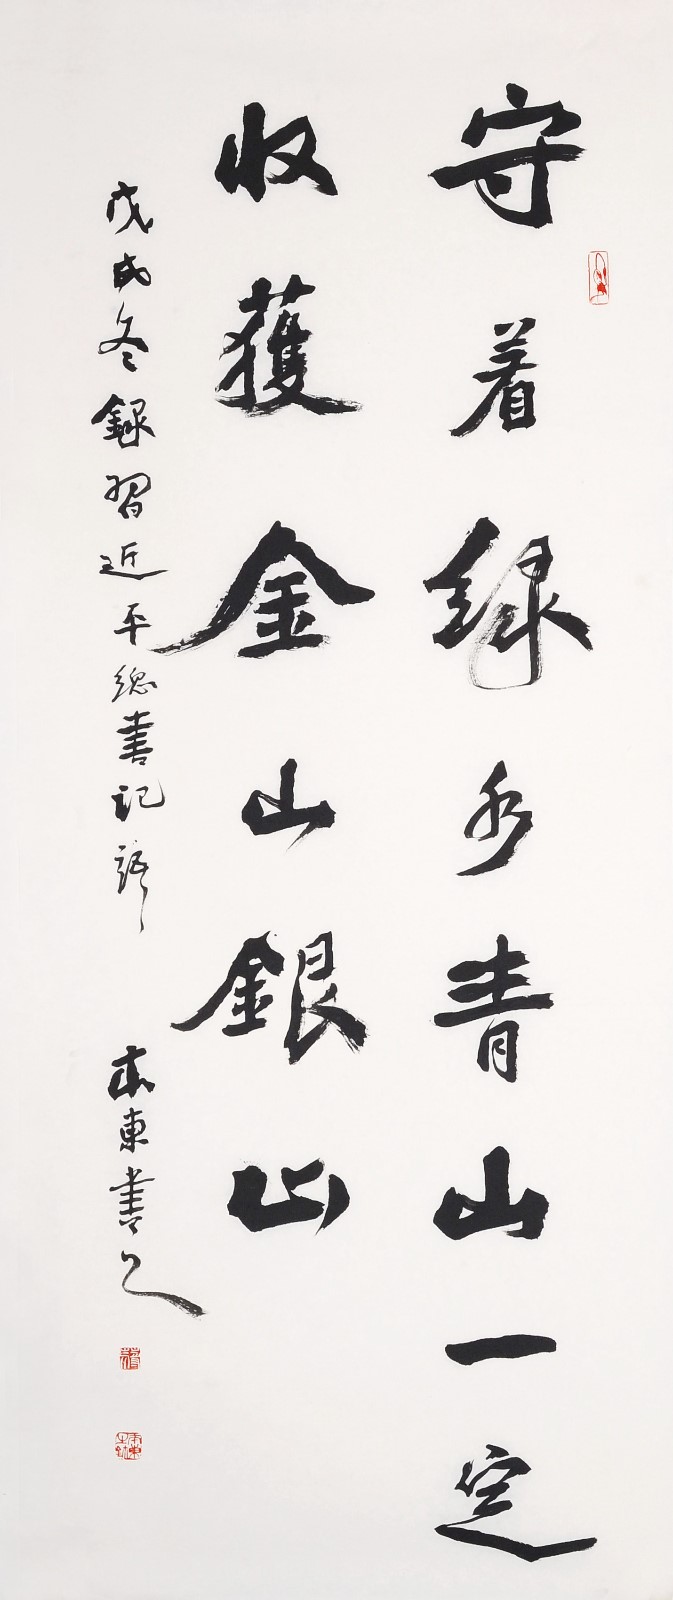 守着绿水青山一定
收獲金山銀山
戊戌冬録習近平總書記語
東書之